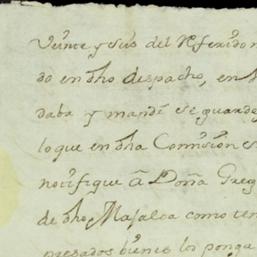 Veinte y seis del Referido
do en dho despacho, en
daba y mandè se guarde
lo que en dha Comission
notifique â Doña Greg
de dho Majalca como ten
presados bienes los ponga